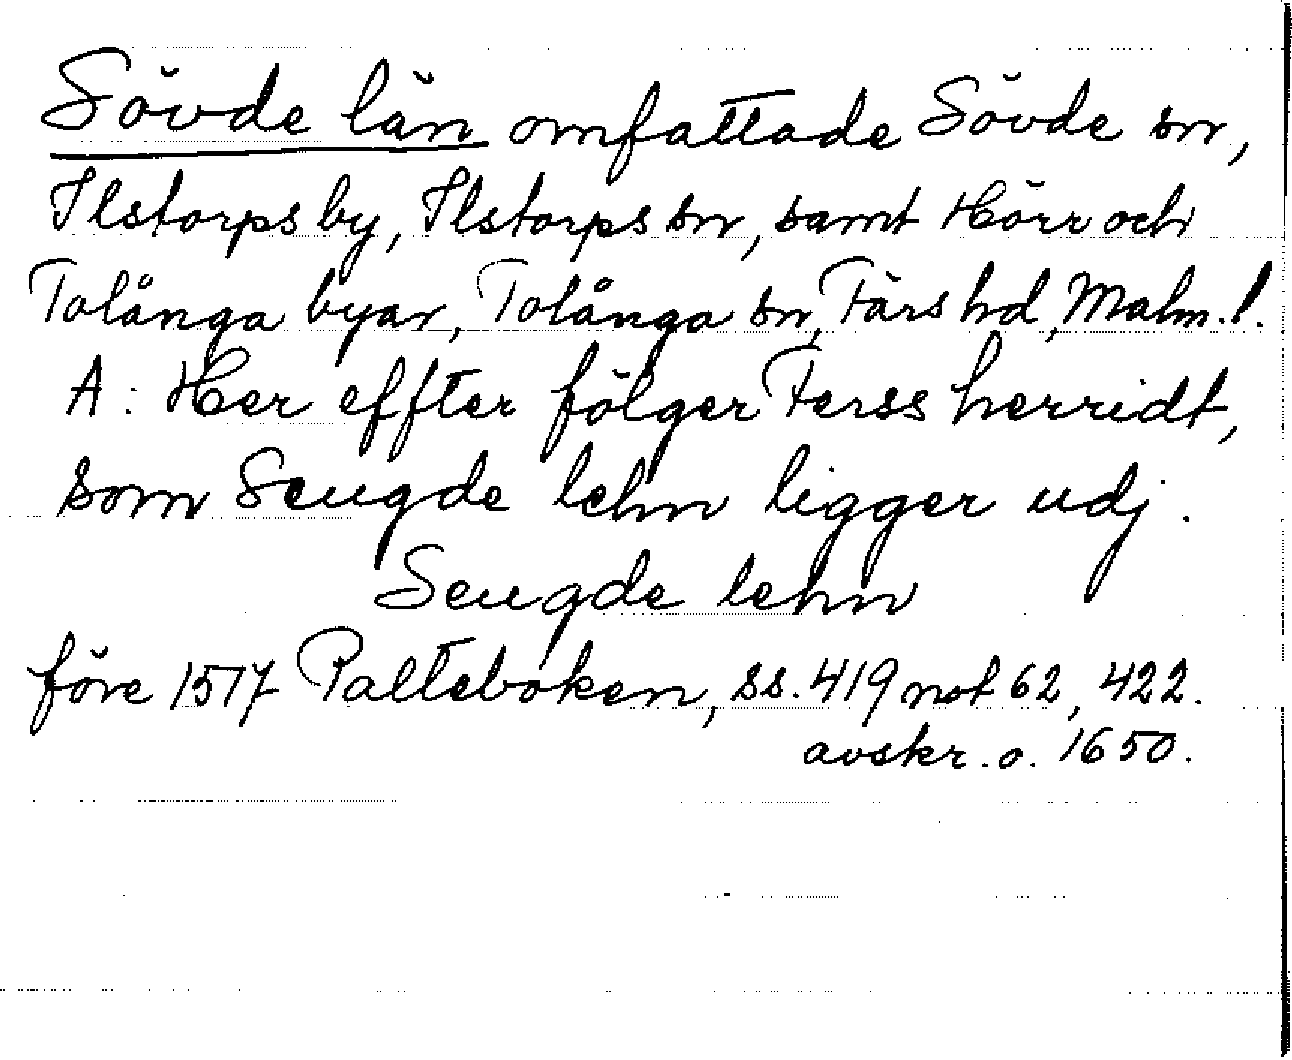 Sövde län omfattade Sövde sn,
Ilstorps by, Ilstorps sn, samt Hörr och
Tolånga byar, Tolånga sn, Färs hd, Malm. l.
A: Her effter fölger Ferss herridt,
som Seugde lehn ligger udj.
Seugde lehn
före 1517 Palteboken, ss. 419 not 62, 422.
avskr. o. 1650.